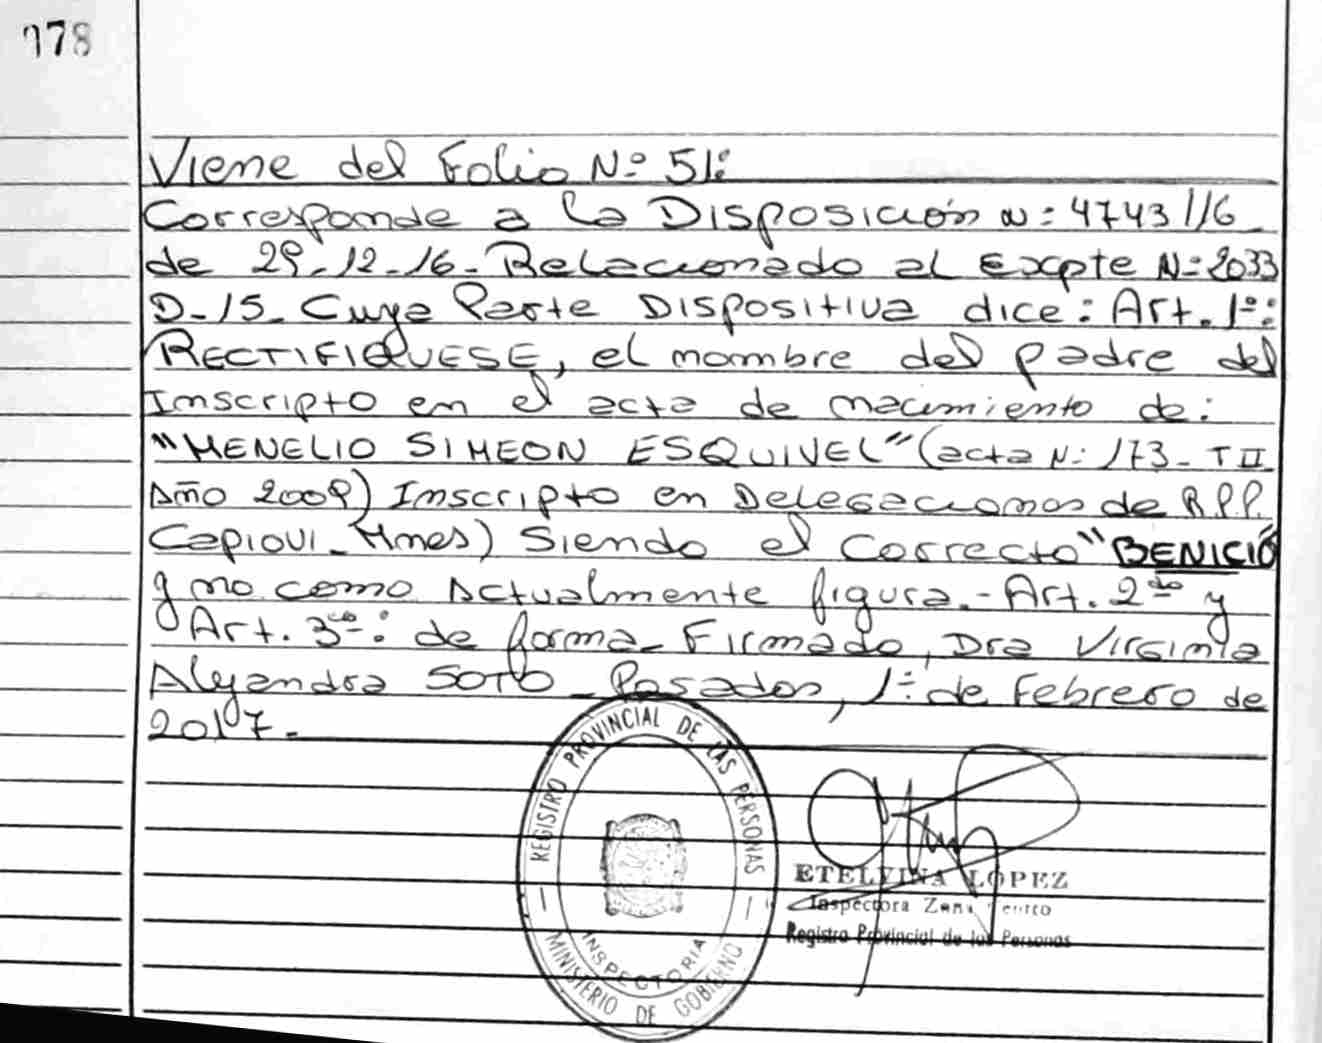 178
Viene del Folio Nº 51:
Corresponde a la Disposición Nº: 4743/16
de 29-12-16- Relacionado al Expte Nº: 2033
D-15- Cuya Parte Dispositiva dice: Art. 1º:
RECTIFIQUESE, el nombre del padre del
Inscripto en el acta de nacimiento de:
"MENELIO SIMEON ESQUIVEL" (acta Nº: 173- T II
Año 2009) Inscripto en Delegaciones de R.P.P.
Capiovi- Mnes) Siendo el Correcto "BENICIO
y no como Actualmente figura.- Art. 2do y
Art. 3ro: de forma- Firmado, Dra Virginia
Alejandra SOTO- Posadas, 1º de Febrero de
2017.-
REGISTRO PROVINCIAL DE LAS PERSONAS
INSPECTORIA
MINISTERIO DE GOBIERNO
ETELVINA LOPEZ
Inspectora Zona Centro
Registro Provincial de las Personas